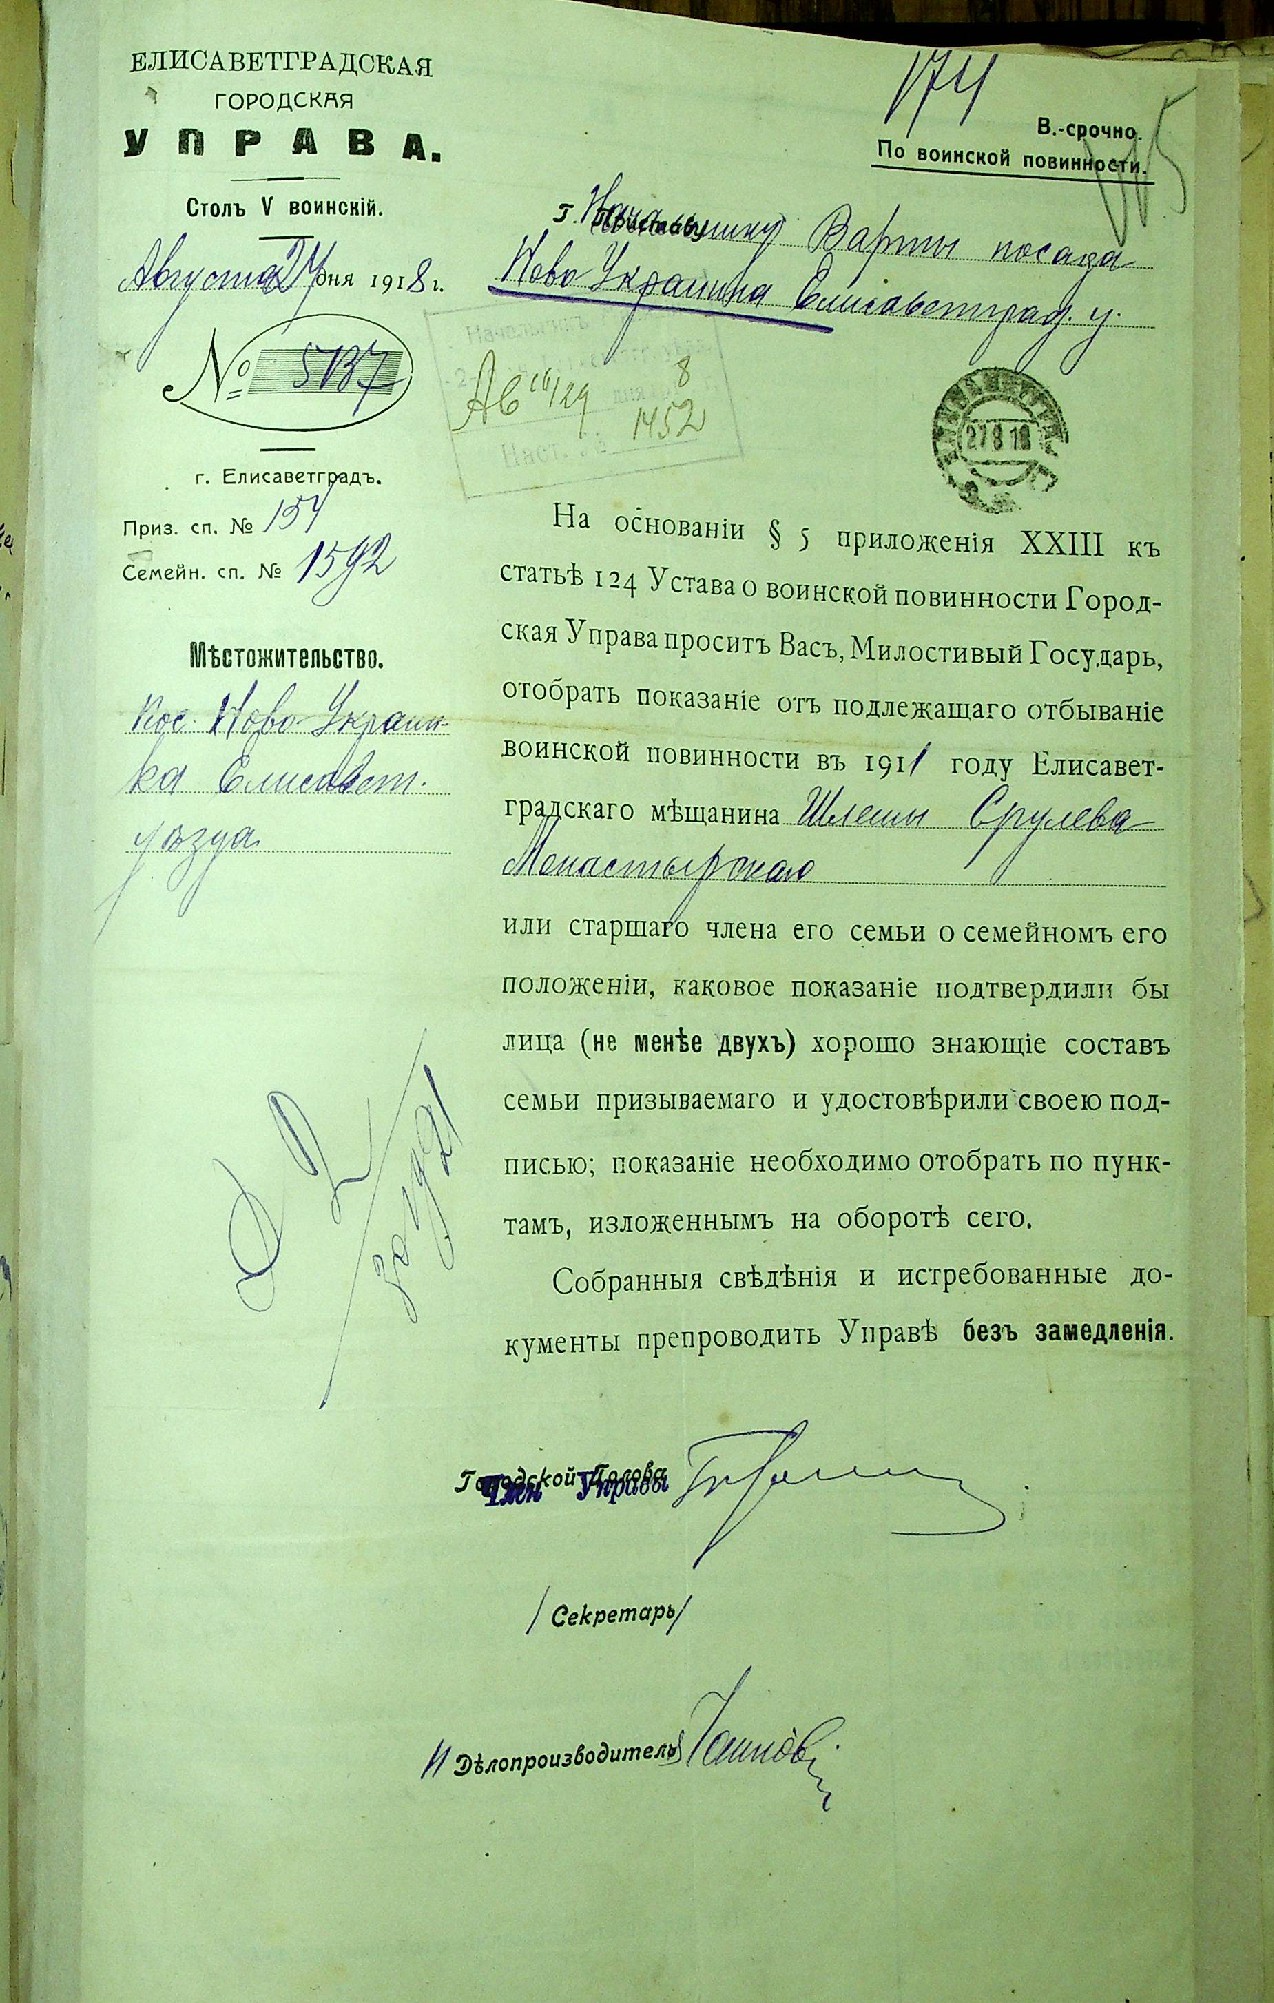 ЕЛИСАВЕТГРАДСКАЯ
ГОРОДСКАЯ
УПРАВА.
Столъ V воинскій.
Августа 27 дня 1918 г.
№ 5137
г. Елисаветградъ.
Приз. сп. № 154
Семейн. сп. № 1592
Мѣстожительство.
пос. Ново-Украин-
ка Елисавет.
уѣзда
174
В.-срочно.
По воинской повинности.
Г. Начальнику Варты посада
Ново Украинка Елисаветград. у.
Начальникъ
Авг 29 дня 8
1452
27 8 18
На основаніи § 5 приложенія XXIII къ
статьѣ 124 Устава о воинской повинности Город-
ская Управа проситъ Васъ, Милостивый Государь,
отобрать показаніе отъ подлежащаго отбыванію
воинской повинности въ 1911 году Елисавет-
градскаго мѣщанина Шлемы Срулева
Монастырскаго
или старшаго члена его семьи о семейномъ его
положеніи, каковое показаніе подтвердили бы
лица (не менѣе двухъ) хорошо знающіе составъ
семьи призываемаго и удостовѣрили своею под-
писью; показаніе необходимо отобрать по пунк-
тамъ, изложеннымъ на оборотѣ сего.
Собранныя свѣдѣнія и истребованные до-
кументы препроводить Управѣ безъ замедленія.
Городской Голова
Член Управы
/Секретарь/
И Дѣлопроизводитель